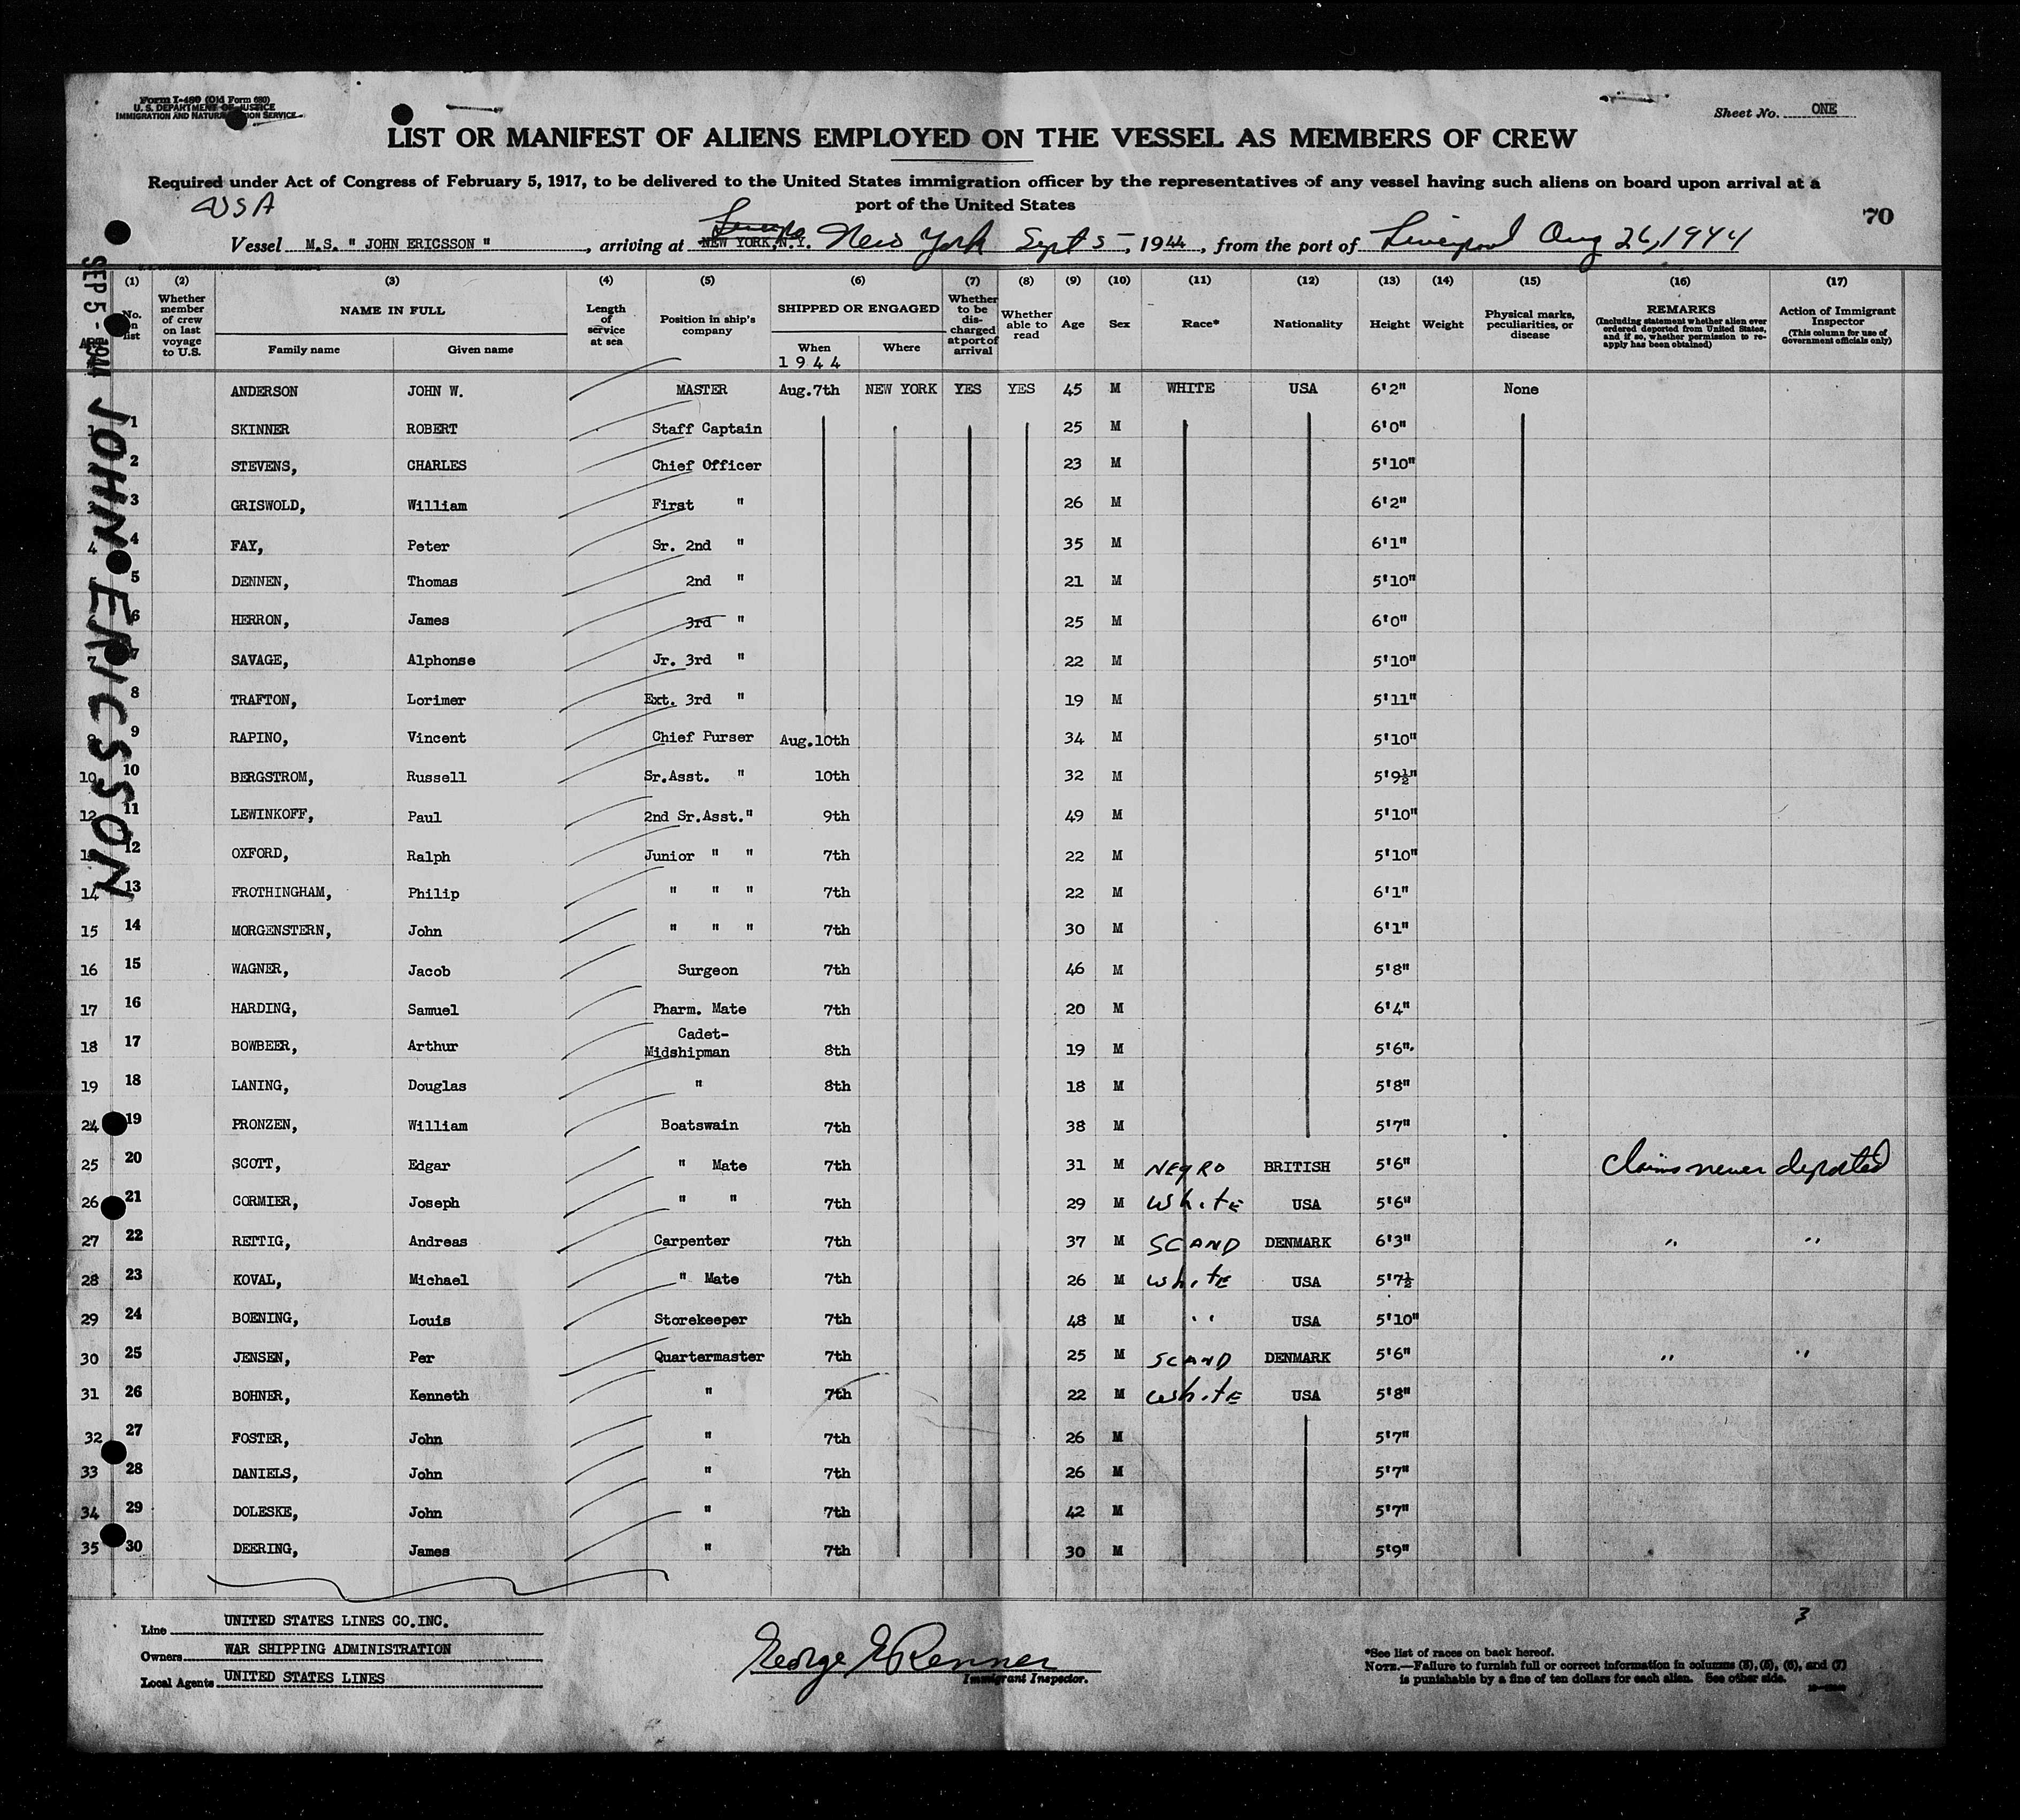 Form I-480 (Old Form 680)
U. S. DEPARTMENT OF JUSTICE
IMMIGRATION AND NATURALIZATION SERVICE
Sheet No. ONE
LIST OR MANIFEST OF ALIENS EMPLOYED ON THE VESSEL AS MEMBERS OF CREW
Required under Act of Congress of February 5, 1917, to be delivered to the United States immigration officer by the representatives of any vessel having such aliens on board upon arrival at a
port of the United States
USA
70
Vessel M.S. " JOHN ERICSSON ", arriving at NEW YORK, N.Y. New York Sept 5, 1944, from the port of Liverpool Aug 26, 1944
SEP 5 - 1944 JOHN ERICSSON
(1) (2) (3) (4) (5) (6) (7) (8) (9) (10) (11) (12) (13) (14) (15) (16) (17)
No. on list
Whether member of crew on last voyage to U.S.
NAME IN FULL
Family name Given name
Length of service at sea
Position in ship's company
SHIPPED OR ENGAGED
When Where
1944
Whether to be discharged at port of arrival
Whether able to read
Age Sex Race* Nationality Height Weight
Physical marks, peculiarities, or disease
REMARKS
(Including statement whether alien ever ordered deported from United States, and if so, whether permission to re-apply has been obtained)
Action of Immigrant Inspector
(This column for use of Government officials only)
ANDERSON JOHN W. MASTER Aug.7th NEW YORK YES YES 45 M WHITE USA 6'2" None
1 SKINNER ROBERT Staff Captain 25 M 6'0"
2 STEVENS, CHARLES Chief Officer 23 M 5'10"
3 GRISWOLD, William First " 26 M 6'2"
4 4 FAY, Peter Sr. 2nd " 35 M 6'1"
5 DENNEN, Thomas 2nd " 21 M 5'10"
6 HERRON, James 3rd " 25 M 6'0"
7 7 SAVAGE, Alphonse Jr. 3rd " 22 M 5'10"
8 TRAFTON, Lorimer Ext. 3rd " 19 M 5'11"
9 RAPINO, Vincent Chief Purser Aug.10th 34 M 5'10"
10 10 BERGSTROM, Russell Sr.Asst. " 10th 32 M 5'9½"
12 11 LEWINKOFF, Paul 2nd Sr.Asst." 9th 49 M 5'10"
13 12 OXFORD, Ralph Junior " " 7th 22 M 5'10"
14 13 FROTHINGHAM, Philip " " " 7th 22 M 6'1"
15 14 MORGENSTERN, John " " " 7th 30 M 6'1"
16 15 WAGNER, Jacob Surgeon 7th 46 M 5'8"
17 16 HARDING, Samuel Pharm. Mate 7th 20 M 6'4"
18 17 BOWBEER, Arthur Cadet-Midshipman 8th 19 M 5'6"
19 18 LANING, Douglas " 8th 18 M 5'8"
24 19 PRONZEN, William Boatswain 7th 38 M 5'7"
25 20 SCOTT, Edgar " Mate 7th 31 M NEGRO BRITISH 5'6" Claims never deported
26 21 CORMIER, Joseph " " 7th 29 M White USA 5'6"
27 22 RETTIG, Andreas Carpenter 7th 37 M SCAND DENMARK 6'3" " "
28 23 KOVAL, Michael " Mate 7th 26 M White USA 5'7½
29 24 BOENING, Louis Storekeeper 7th 48 M " USA 5'10"
30 25 JENSEN, Per Quartermaster 7th 25 M SCAND DENMARK 5'6" " "
31 26 BOHNER, Kenneth " 7th 22 M White USA 5'8"
32 27 FOSTER, John " 7th 26 M 5'7"
33 28 DANIELS, John " 7th 26 M 5'7"
34 29 DOLESKE, John " 7th 42 M 5'7"
35 30 DEERING, James " 7th 30 M 5'9"
3
Line UNITED STATES LINES CO.INC.
Owners WAR SHIPPING ADMINISTRATION
Local Agents UNITED STATES LINES
George E Renner
Immigrant Inspector.
*See list of races on back hereof.
NOTE.—Failure to furnish full or correct information in columns (3), (5), (6), and (7)
is punishable by a fine of ten dollars for each alien. See other side.